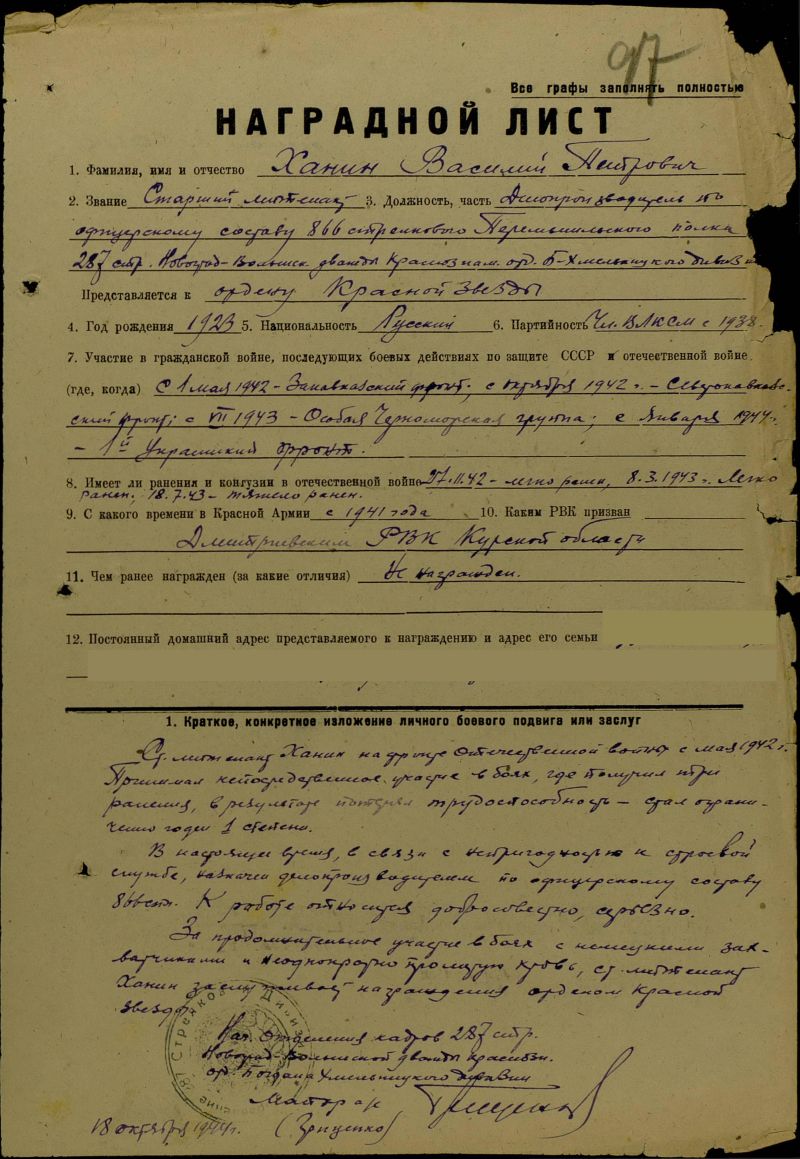 97
Все графы заполнять полностью
НАГРАДНОЙ ЛИСТ
1. Фамилия, имя и отчество Ханин Василий Петрович
2. Звание Старший лейтенант 3. Должность, часть Делопроизводитель по
офицерскому составу 866 стрелкового Перемышльского полка
287 стр. Новоград-Волынск. дважды Краснознам. орд. Б-Хмельницкого дивизии
Представляется к ордену Красной Звезды
4. Год рождения 1923 5. Национальность Русский 6. Партийность Чл. ВЛКСМ с 1938.
7. Участие в гражданской войне, последующих боевых действиях по защите СССР и отечественной войне
(где, когда) С 1 мая 1942 - Закавказский фронт, с октября 1942 г. - Северокавказ-
ский фронт; с VII 1943 - Особая Черноморская группа; с Января 1944 г.
- 1й Украинский фронт.
8. Имеет ли ранения и контузии в отечественной войне 27.11.42 - легко ранен, 8.3.1943 г. Легко
ранен, 18.7.43 - тяжело ранен.
9. С какого времени в Красной Армии с 1941 года 10. Каким РВК призван
Дмитриевским РВК Курской области
11. Чем ранее награжден (за какие отличия) Не награжден.
12. Постоянный домашний адрес представляемого к награждению и адрес его семьи
1. Краткое, конкретное изложение личного боевого подвига или заслуг
Ст. лейтенант Ханин на фронте Отечественной войны с мая 1942 г.
Принимал непосредственное участие в боях, где получил три
ранения, в результате потерял трудоспособность - стал ограни-
ченно годен 1 степени.
В настоящее время, в связи с непригодностью к строевой
службе, назначен делопроизводителем по офицерскому составу
866 сп. К работе относится добросовестно, серьезно.
За продолжительное участие в боях с немецкими зах-
ватчиками и неоднократно пролитую кровь, ст. лейтенант
Ханин заслуживает награждения орденом Красной
Звезды.
Нач. Отделения кадров 287 стр.
Новоград-Волынской дважды краснозн.
орд. Богдана Хмельницкого дивизии
Майор
18 октября 1944 г. (Грищенко)